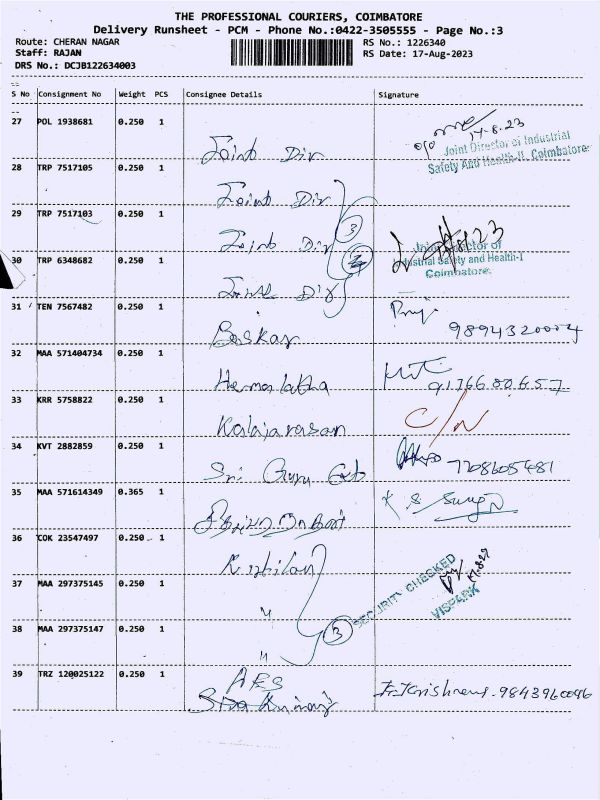 THE PROFESSIONAL COURIERS, COIMBATORE
Delivery Runsheet - PCM - Phone No.:0422-3505555 - Page No.:3
Route: CHERAN NAGAR
RS No.: 1226340
Staff: RAJAN
RS Date: 17-Aug-2023
DRS No.: DCJB122634003
S No Consignment No Weight PCS Consignee Details Signature
27 POL 1938681 0.250 1
17-8-23
Joint Director of Industrial
Safety And Health-II, Coimbatore
Joint Dir
28 TRP 7517105 0.250 1
Joint Dir
29 TRP 7517103 0.250 1
3
Joint Dir
Joint Director of
Industrial Safety and Health-I
Coimbatore.
30 TRP 6348682 0.250 1
Joint Dir
31 TEN 7567482 0.250 1
Baskar
32 MAA 571404734 0.250 1
Hemalatha
33 KRR 5758822 0.250 1
C/N
Kalaiarasan
34 KVT 2882859 0.250 1
7708605481
Sri Guru
35 MAA 571614349 0.365 1
36 COK 23547497 0.250 1
37 MAA 297375145 0.250 1
SECURITY CHECKED
VISPARK
"
38 MAA 297375147 0.250 1
3
"
39 TRZ 120025122 0.250 1
AES
Siva Kumar